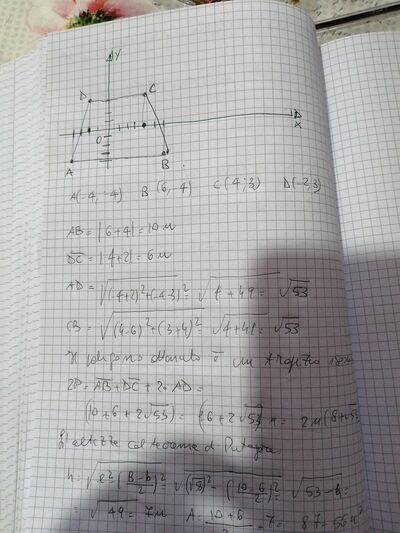 Y
D C
O
X
A B
A(-4,-4) B(6,-4) C(4;3) D(-2,3)
AB = |6+4| = 10 u
DC = |4+2| = 6 u
AD = √(-4+2)²+(-4-3)² = √4+49 = √53
CB = √(4-6)²+(3+4)² = √4+49 = √53
Il poligono ottenuto è un trapezio
2P = AB + DC + 2·AD =
(10+6+2√53) = (16+2√53) u = 2u(8+√53)
L'altezza col teorema di Pitagora
h = √l²-(B-b/2)² = √(√53)²-(10-6/2)² = √53-4 =
= √49 = 7u A = 10+6/2 · 7 = 8·7 = 56 u²